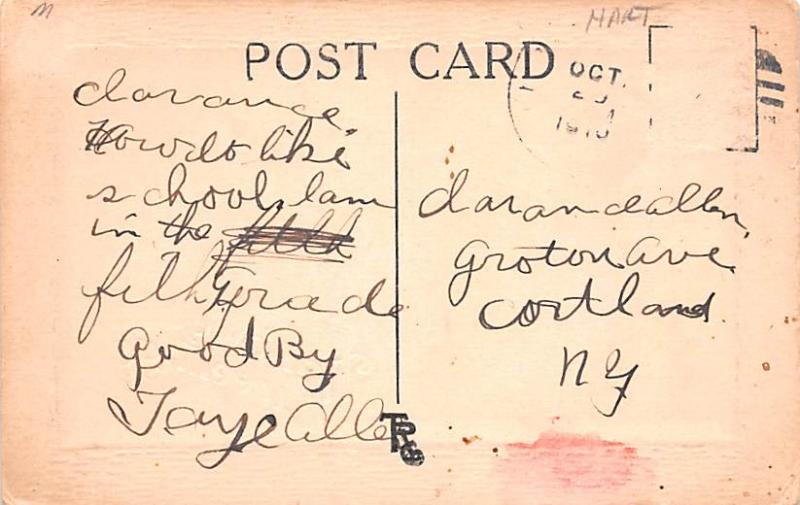 M
HART
POST CARD
OCT.
1910
Claranse
How do like
school, I am
in the
fith Grade
Good By
Faye Allen
Claranse allen,
Groton Ave.
Cortland
NY